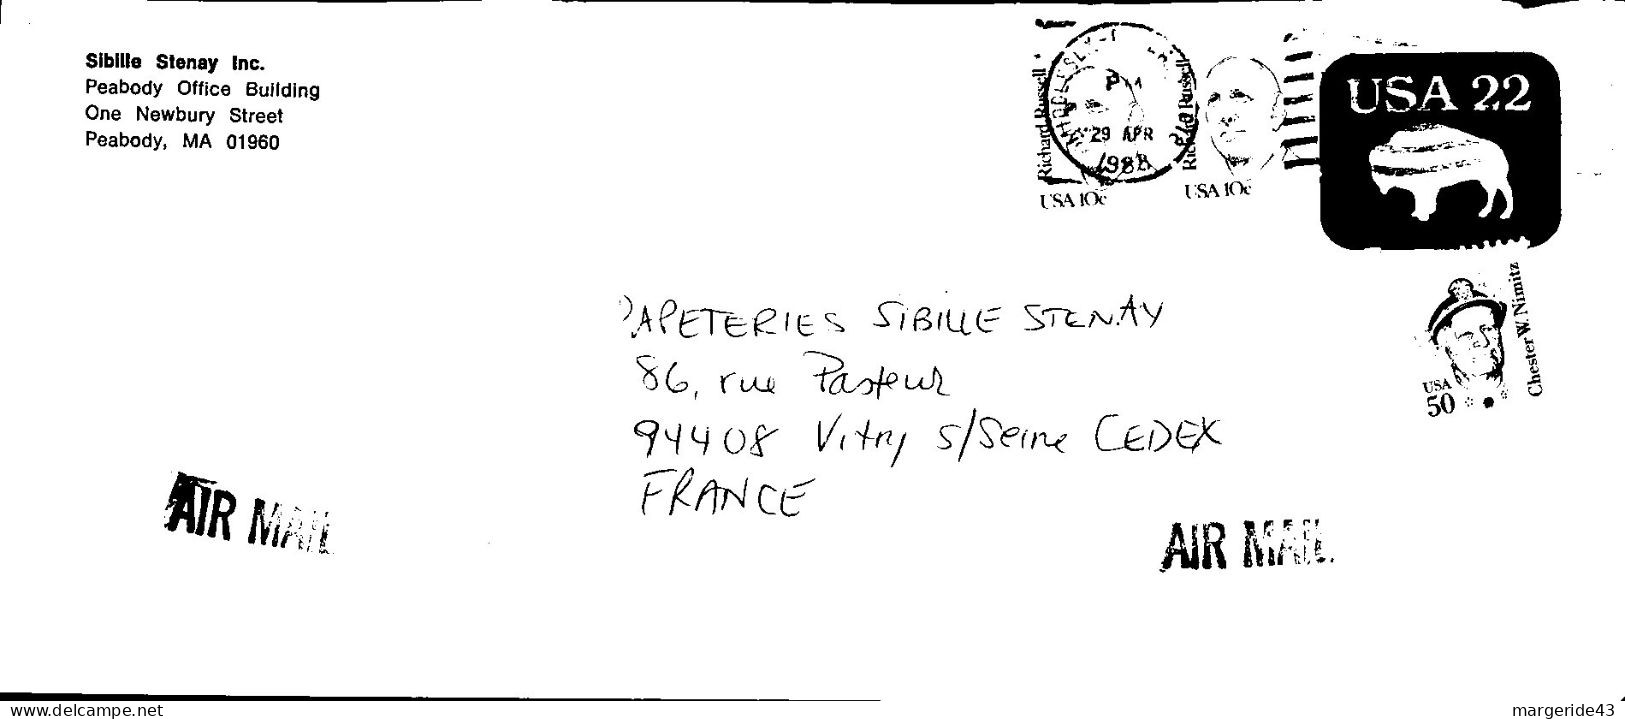 Sibille Stenay Inc.
Peabody Office Building
One Newbury Street
Peabody, MA 01960
Richard Russell
USA 10c
PM
29 APR
1988
Richard Russell
USA 10c
USA 22
Chester W. Nimitz
USA
50
PAPETERIES SIBILLE STENAY
86, rue Pasteur
94408 Vitry s/Seine CEDEX
FRANCE
AIR MAIL
AIR MAIL
www.delcampe.net
margeride43